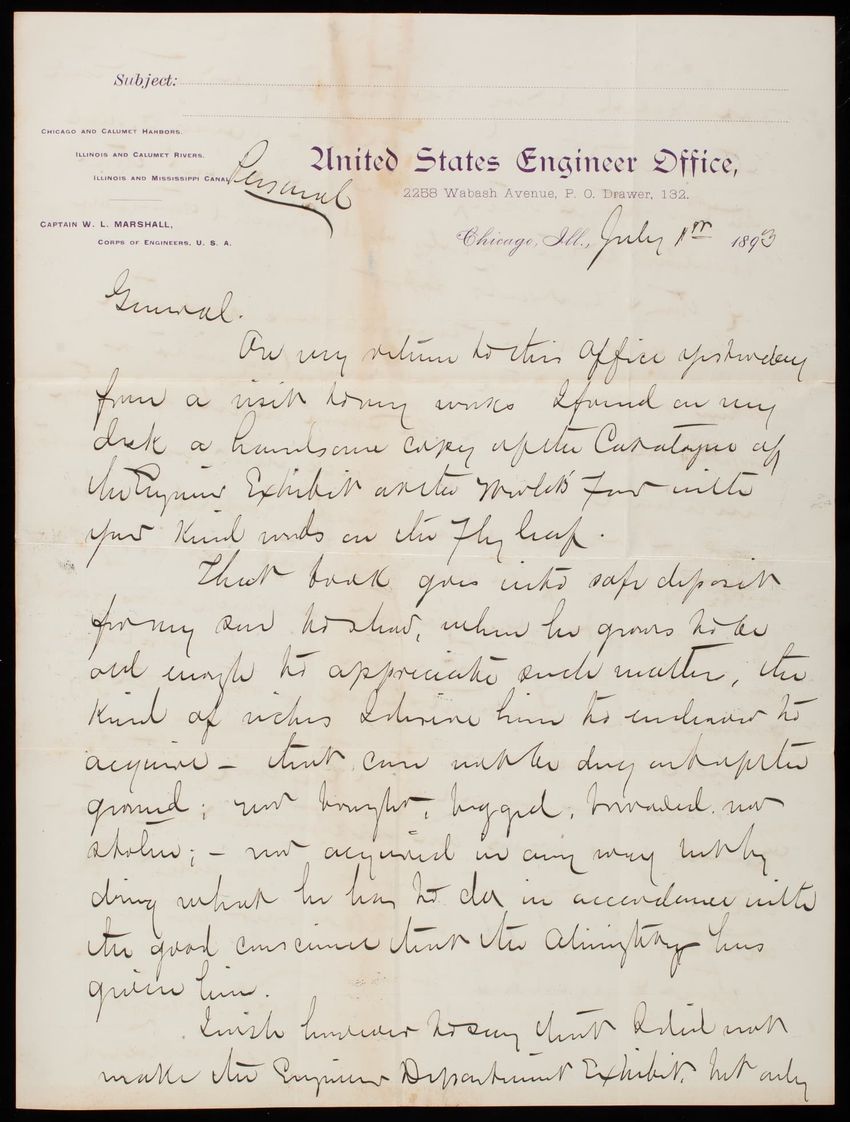 Subject:
CHICAGO AND CALUMET HARBORS.
ILLINOIS AND CALUMET RIVERS.
ILLINOIS AND MISSISSIPPI CANAL
Personal
United States Engineer Office,
2258 Wabash Avenue, P. O. Drawer, 132.
CAPTAIN W. L. MARSHALL,
CORPS OF ENGINEERS, U. S. A.
Chicago, Ill., July 1st 1893
General.
On my return to this office yesterday
from a visit to my works I found on my
desk a handsome copy of the Catalogue of
the Engineer Exhibit at the World's Fair with
your kind words on the Fly leaf.
That book goes into safe deposit
for my son to show, when he grows to be
old enough to appreciate such matter, the
kind of riches I desire him to endeavor to
acquire - that can not be dug out of the
ground; nor bought, begged, borrowed nor
stolen; - nor acquired in any way but by
doing what he has to do in accordance with
the good conscience that the Almighty has
given him.
I wish however to say that I did not
make the Engineer Department Exhibit, but only